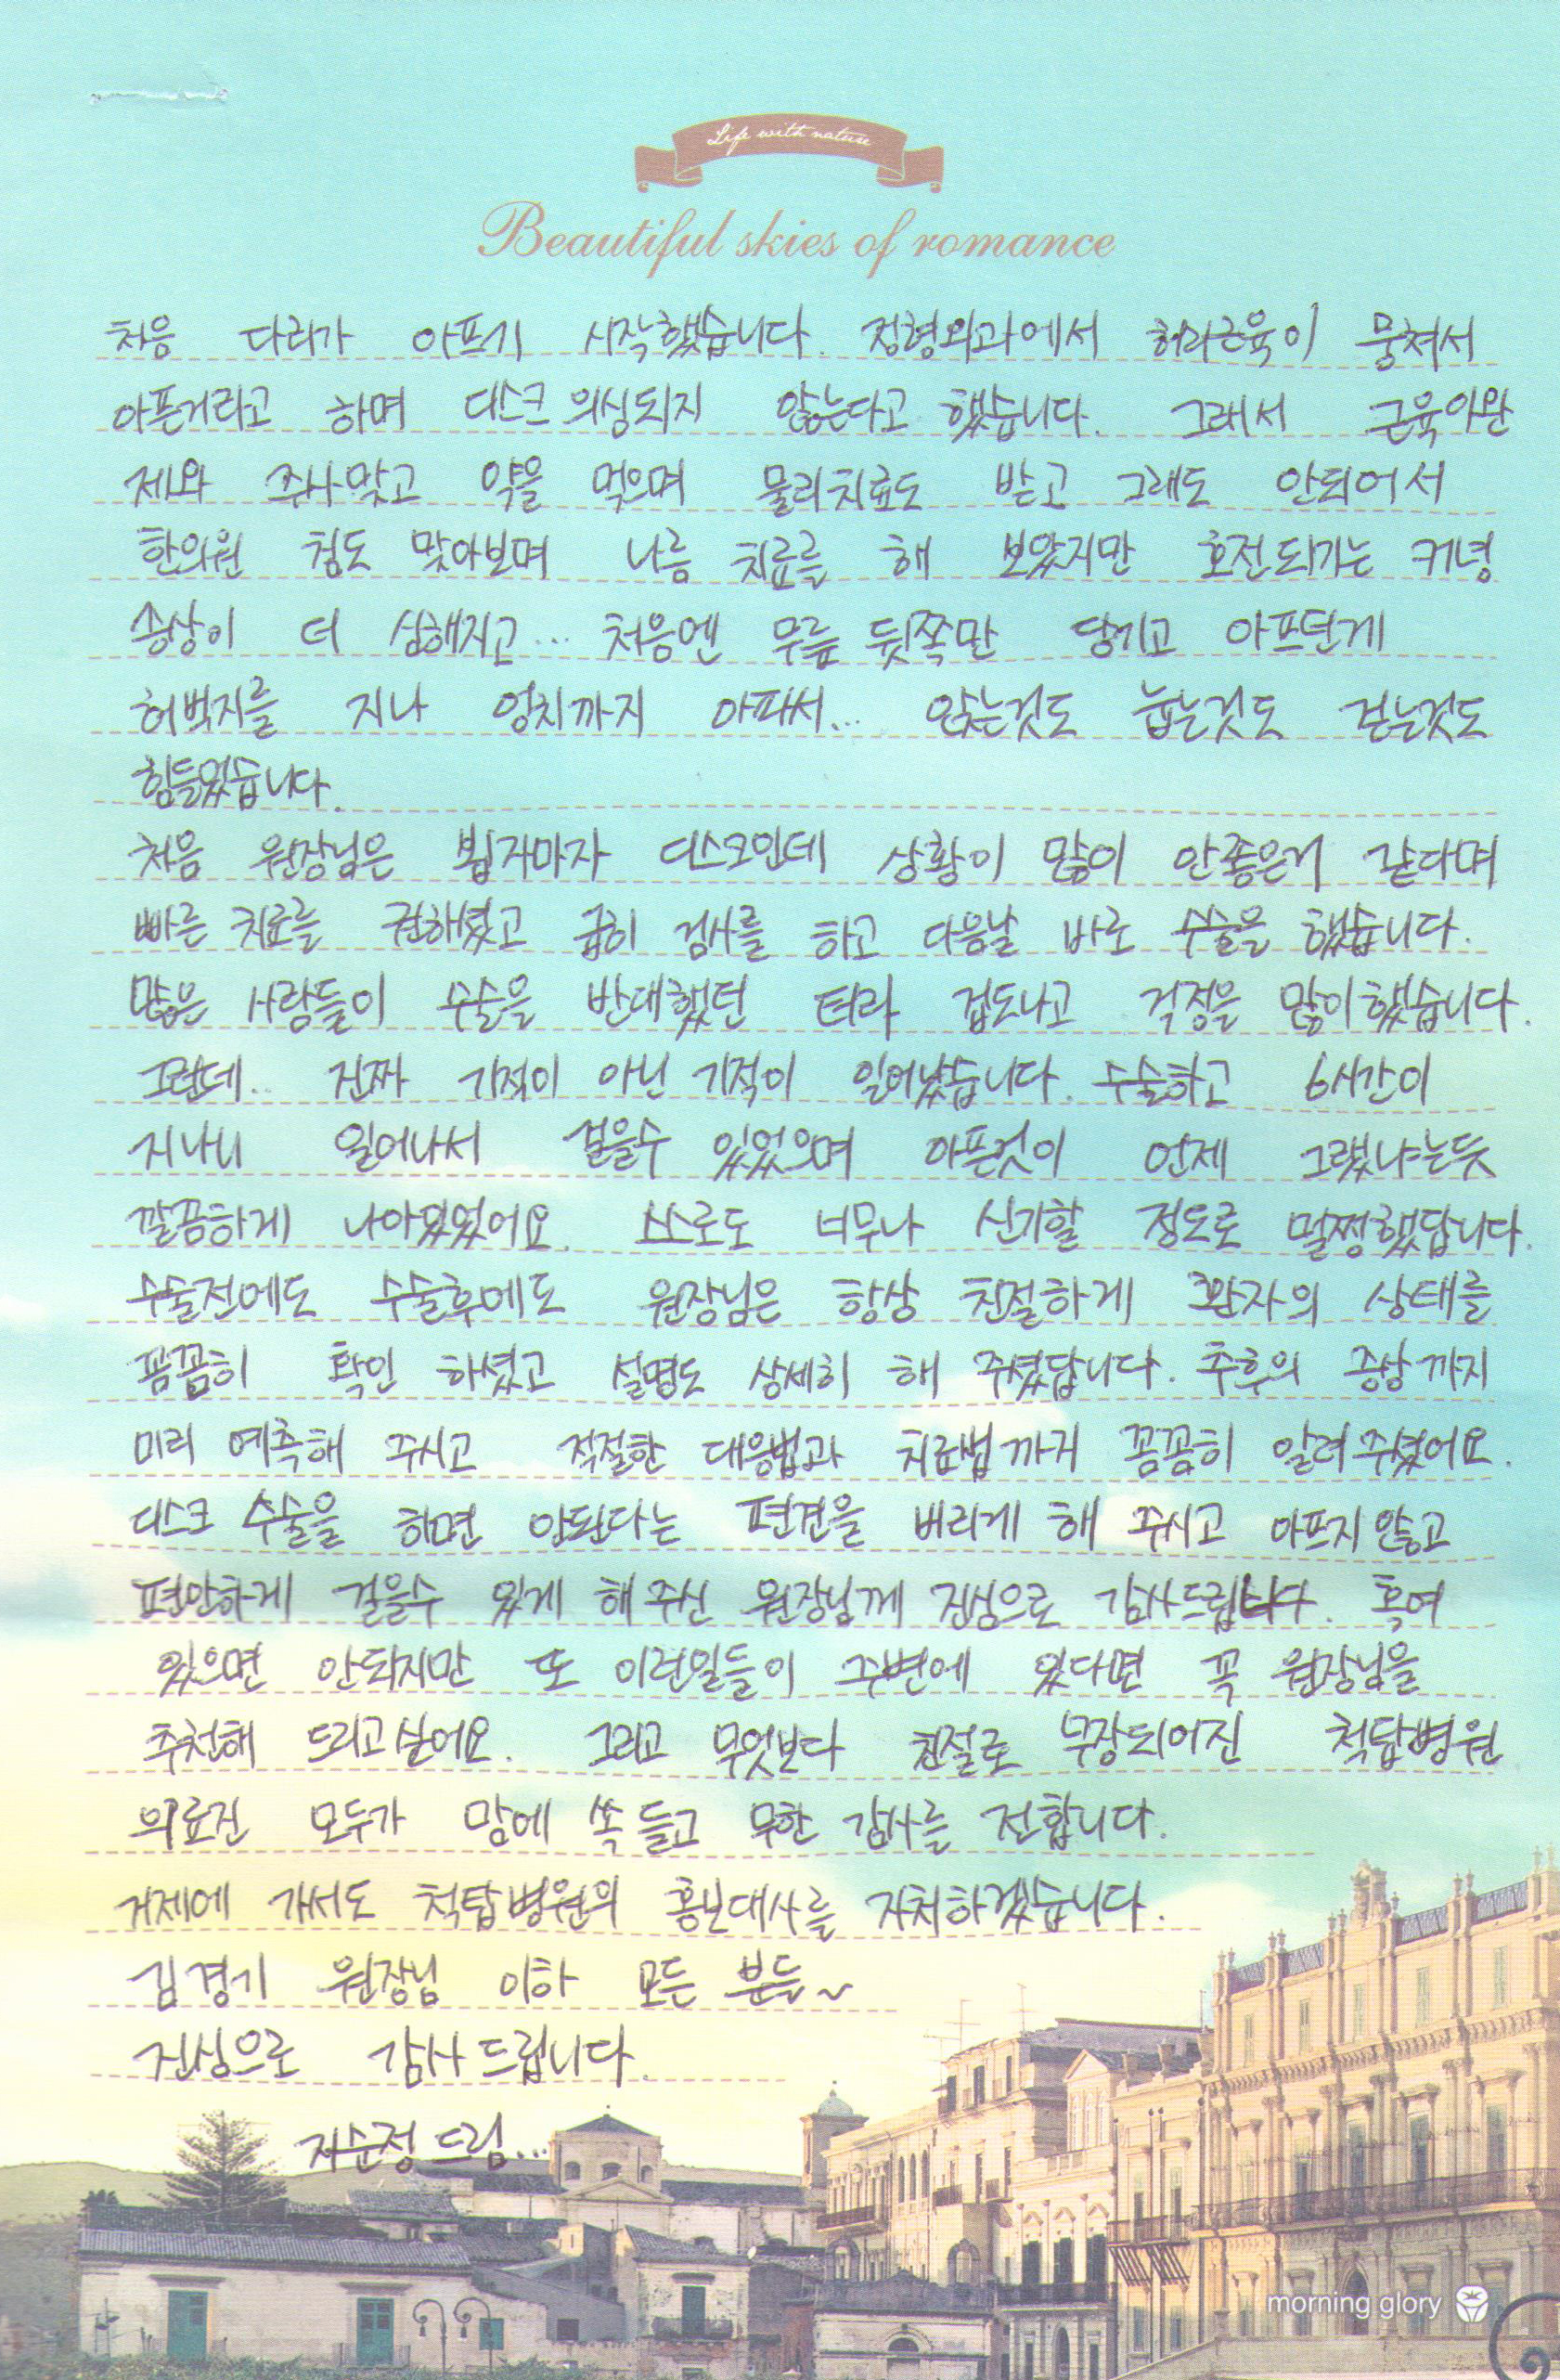 Life with nature
Beautiful skies of romance
처음 다리가 아프기 시작했습니다. 정형외과에서 허리근육이 뭉쳐서
아픈거라고 하며 디스크 의심되지 않는다고 했습니다. 그래서 근육이완
제와 주사맞고 약을 먹으며 물리치료도 받고 그래도 안되어서
한의원 침도 맞아보며 나름 치료를 해 보았지만 호전되기는 커녕
증상이 더 심해지고... 처음엔 무릎 뒷쪽만 당기고 아프던게
허벅지를 지나 엉치까지 아파서... 앉는것도 눕는것도 걷는것도
힘들었습니다.
처음 원장님은 뵙자마자 디스크인데 상황이 많이 안좋은거 같다며
빠른 치료를 권하셨고 급히 검사를 하고 다음날 바로 수술을 했습니다.
많은 사람들이 수술을 반대했던 터라 겁도나고 걱정을 많이했습니다.
그런데.. 진짜 기적이 아닌 기적이 일어났습니다. 수술하고 6시간이
지나니 일어나서 걸을수 있었으며 아픈것이 언제 그랬냐는듯
깔끔하게 나아있었어요. 스스로도 너무나 신기할 정도로 멀쩡했답니다.
수술전에도 수술후에도 원장님은 항상 친절하게 환자의 상태를
꼼꼼히 확인 하셨고 설명도 상세히 해 주셨답니다. 추후의 증상까지
미리 예측해 주시고 적절한 대응법과 치료법까지 꼼꼼히 알려주셨어요.
디스크 수술을 하면 안된다는 편견을 버리게 해 주시고 아프지않고
편안하게 걸을수 있게 해주신 원장님께 진심으로 감사드립니다. 혹여
있으면 안되지만 또 이런일들이 주변에 있다면 꼭 원장님을
추천해 드리고싶어요. 그리고 무엇보다 친절로 무장되어진 척탑병원
의료진 모두가 맘에 쏙 들고 무한 감사를 전합니다.
거제에 가서도 척탑병원의 홍보대사를 자처하겠습니다.
김경기 원장님 이하 모든 분들~
진심으로 감사 드립니다.
지순정 드림...
morning glory